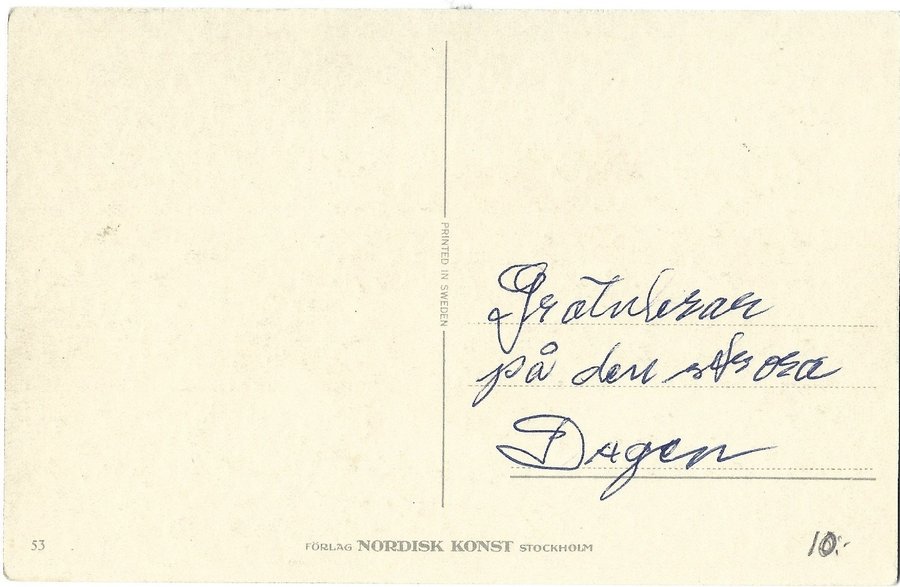 PRINTED IN SWEDEN
Gratulerar
på den stora
Dagen
53
FÖRLAG NORDISK KONST STOCKHOLM
10:-